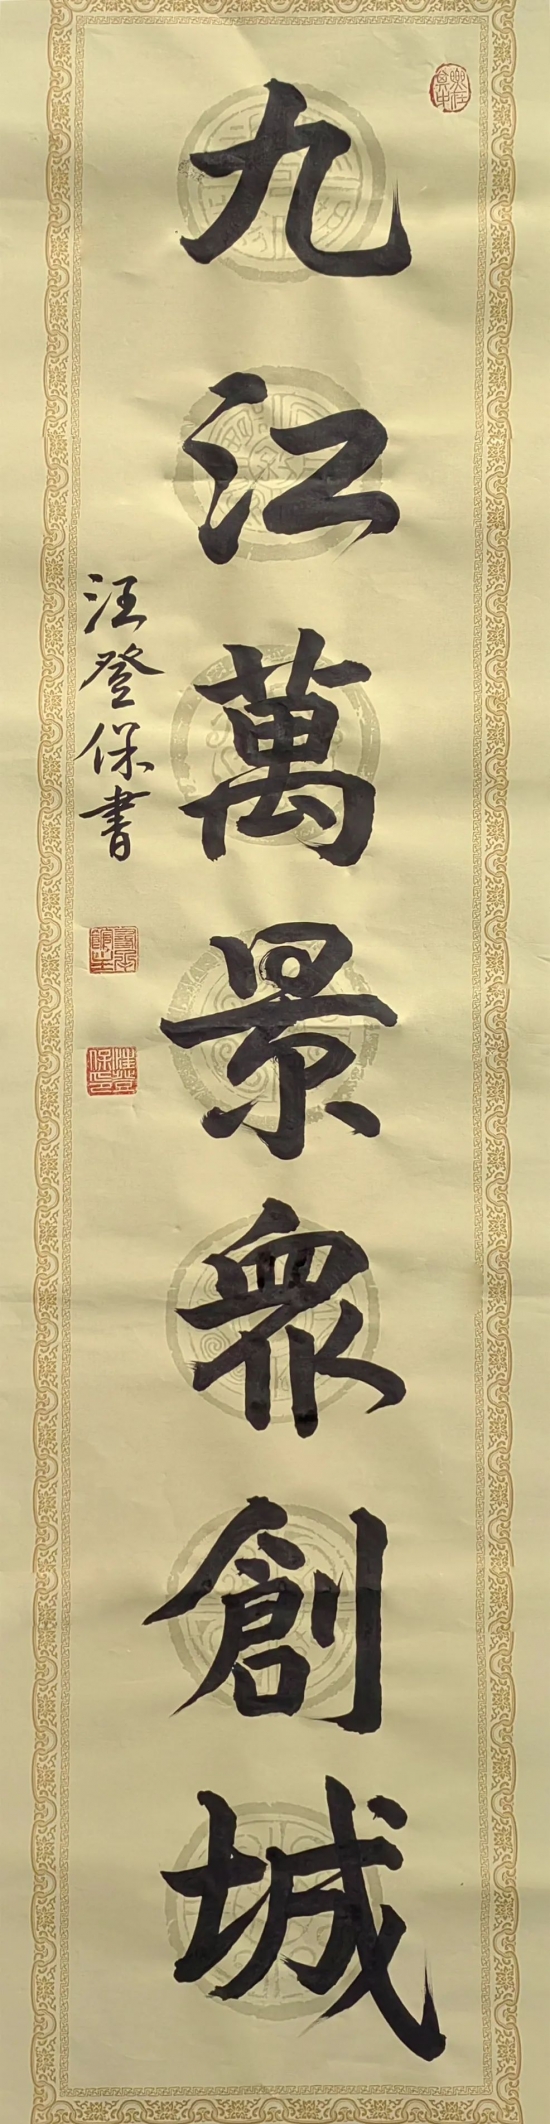 九江萬景眾創城
汪登保書